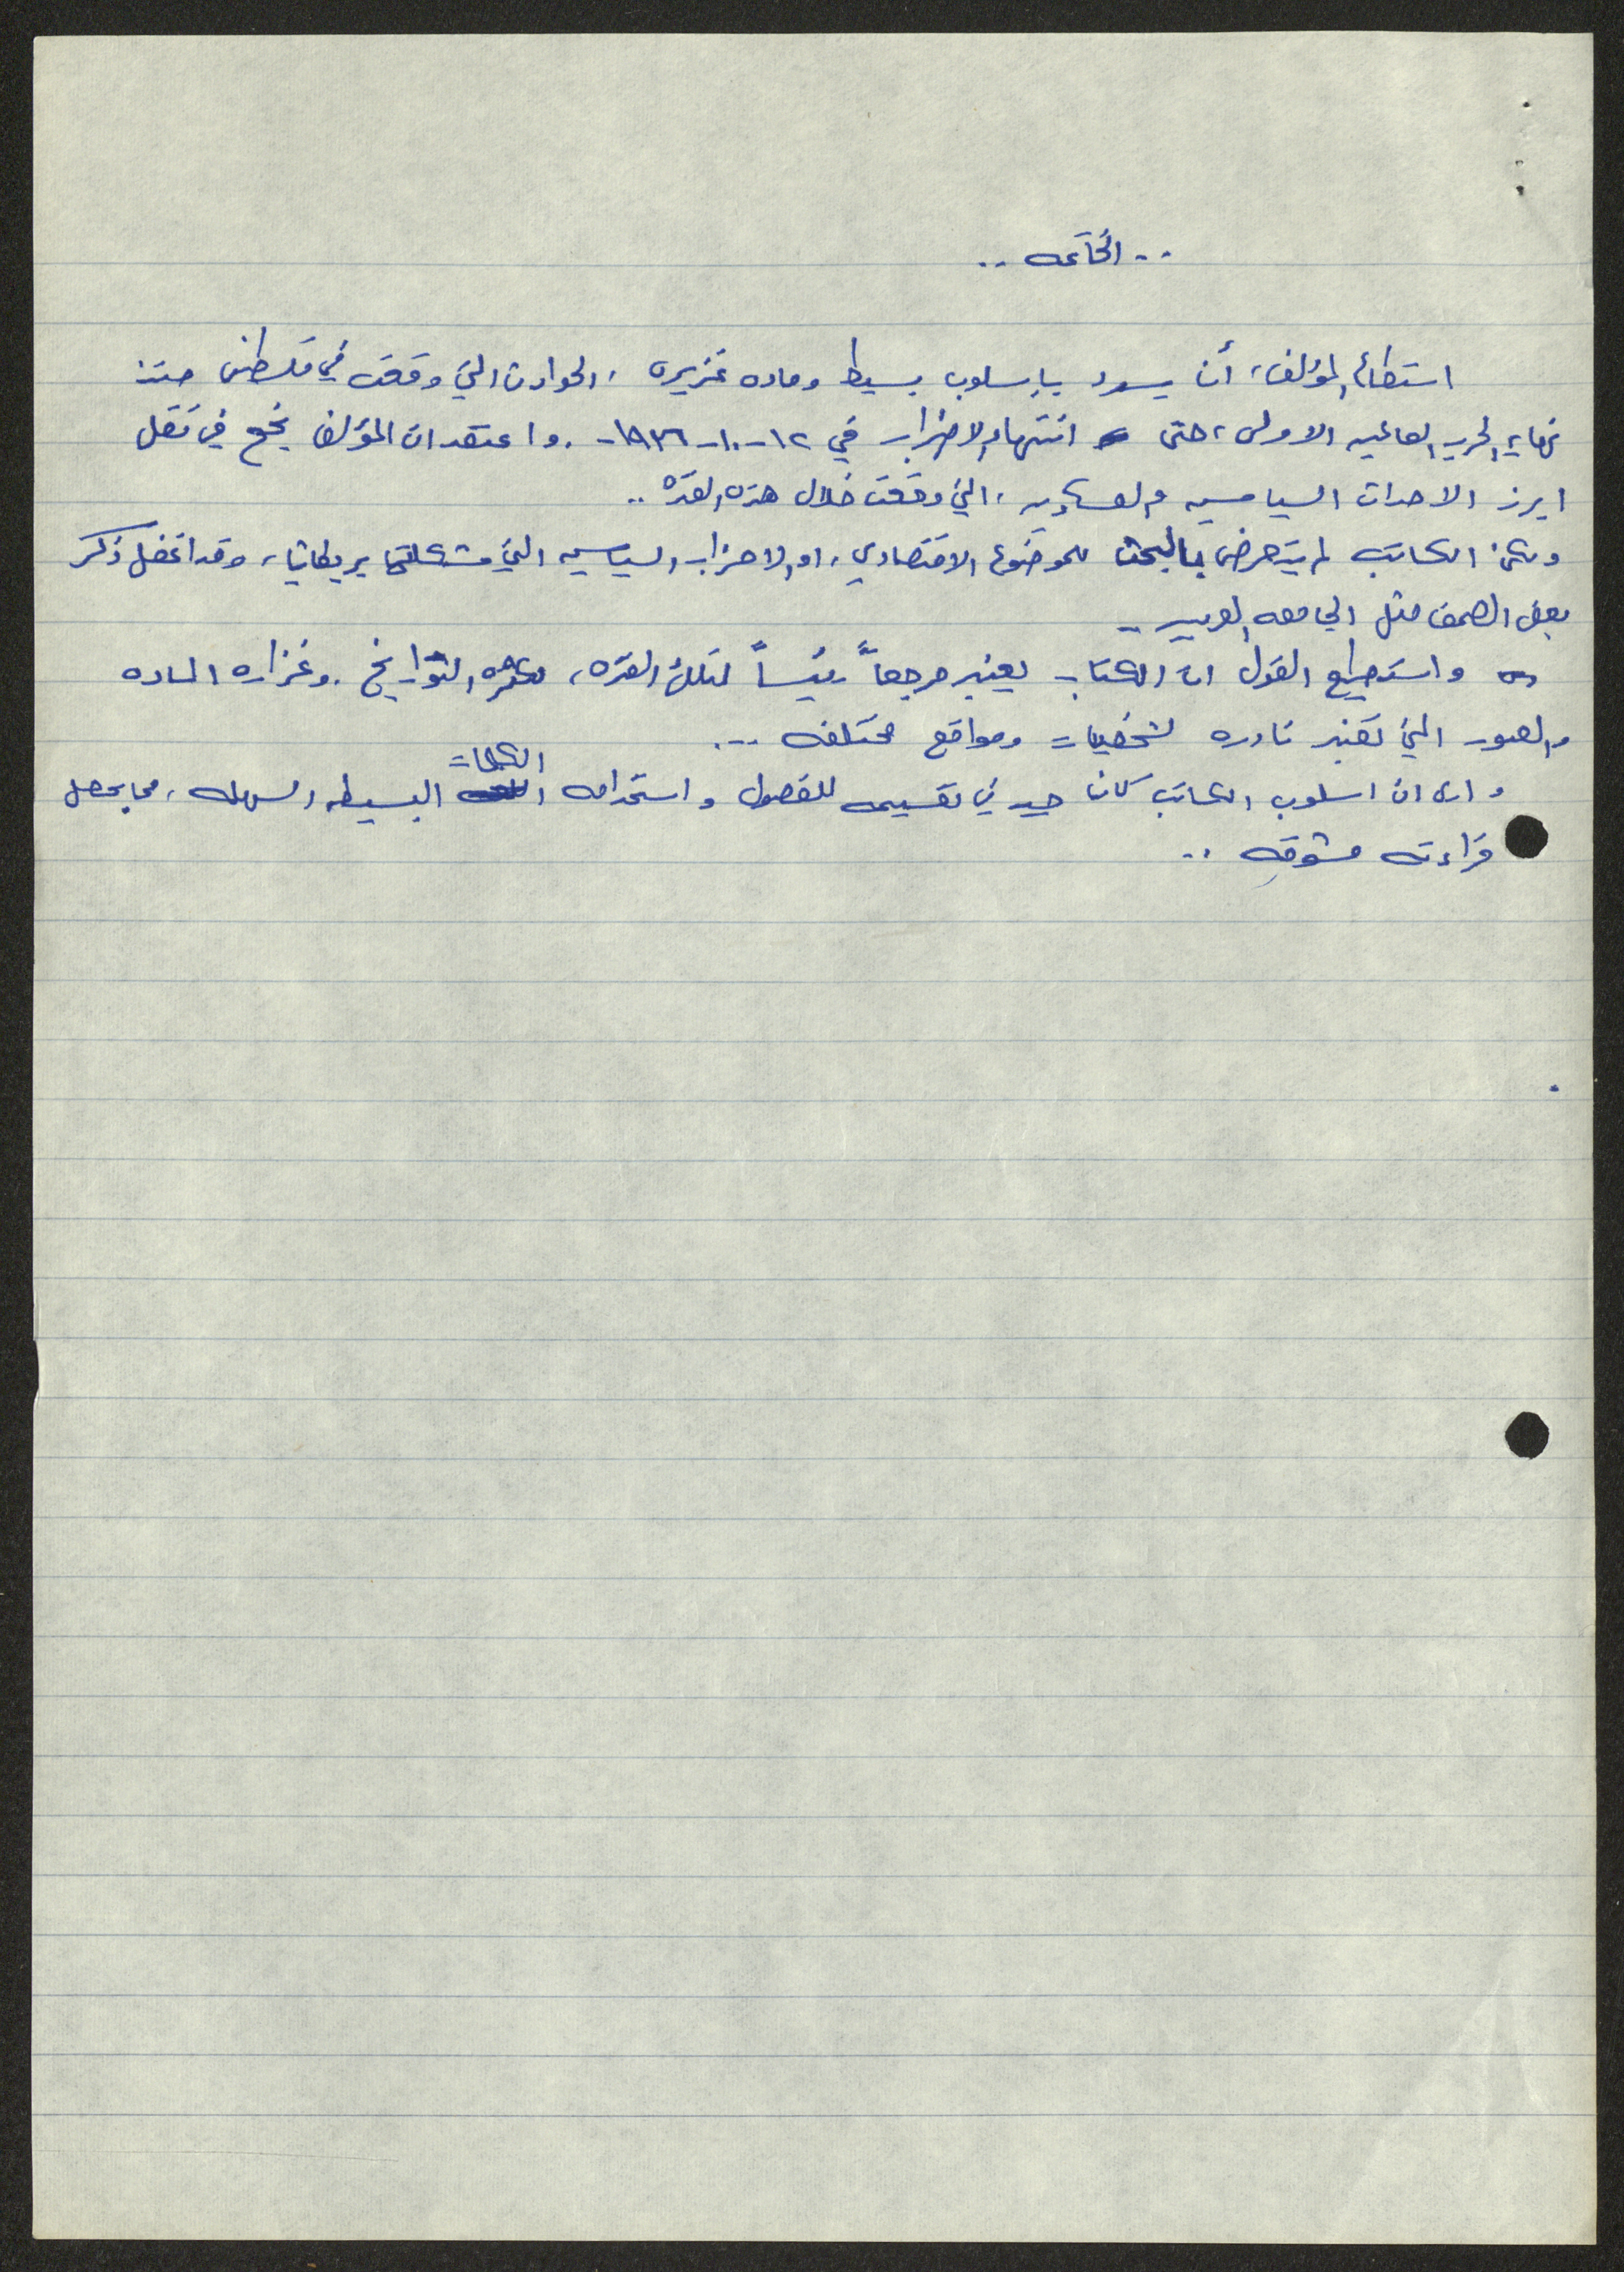 .. الخاتمه ..
استطاع المؤلف، أن يسرد باسلوب بسيط وماده غزيره، الحوادث التي وقعت في فلسطين منذ
نهاية الحرب العالميه الاولى، حتى انتهاء الاضراب في ١٢-١٠-١٩٣٦-. واعتقد ان المؤلف نجح في نقل
ابرز الاحداث السياسيه والعسكريه، التي وقعت خلال هذه الفتره ..
ولكن الكاتب لم يتعرض بالبحث للموضوع الاقتصادي، او الاحزاب السياسيه التي شكلتها بريطانيا، وقد اغفل ذكر
بعض الصحف مثل الجامعه العربيه ..
واستطيع القول ان الكتاب يعتبر مرجعاً رئيساً لتلك الفتره، لكثره التواريخ. وغزاره الماده
والصور التي تعتبر نادره لشخصيات ومواقع مختلفه ...
وارى ان اسلوب الكاتب كان جيد في تقسيمه للفصول واستخدامه الكلمات البسيطه السهله، مما يجعل
قراءته مشوقه ..